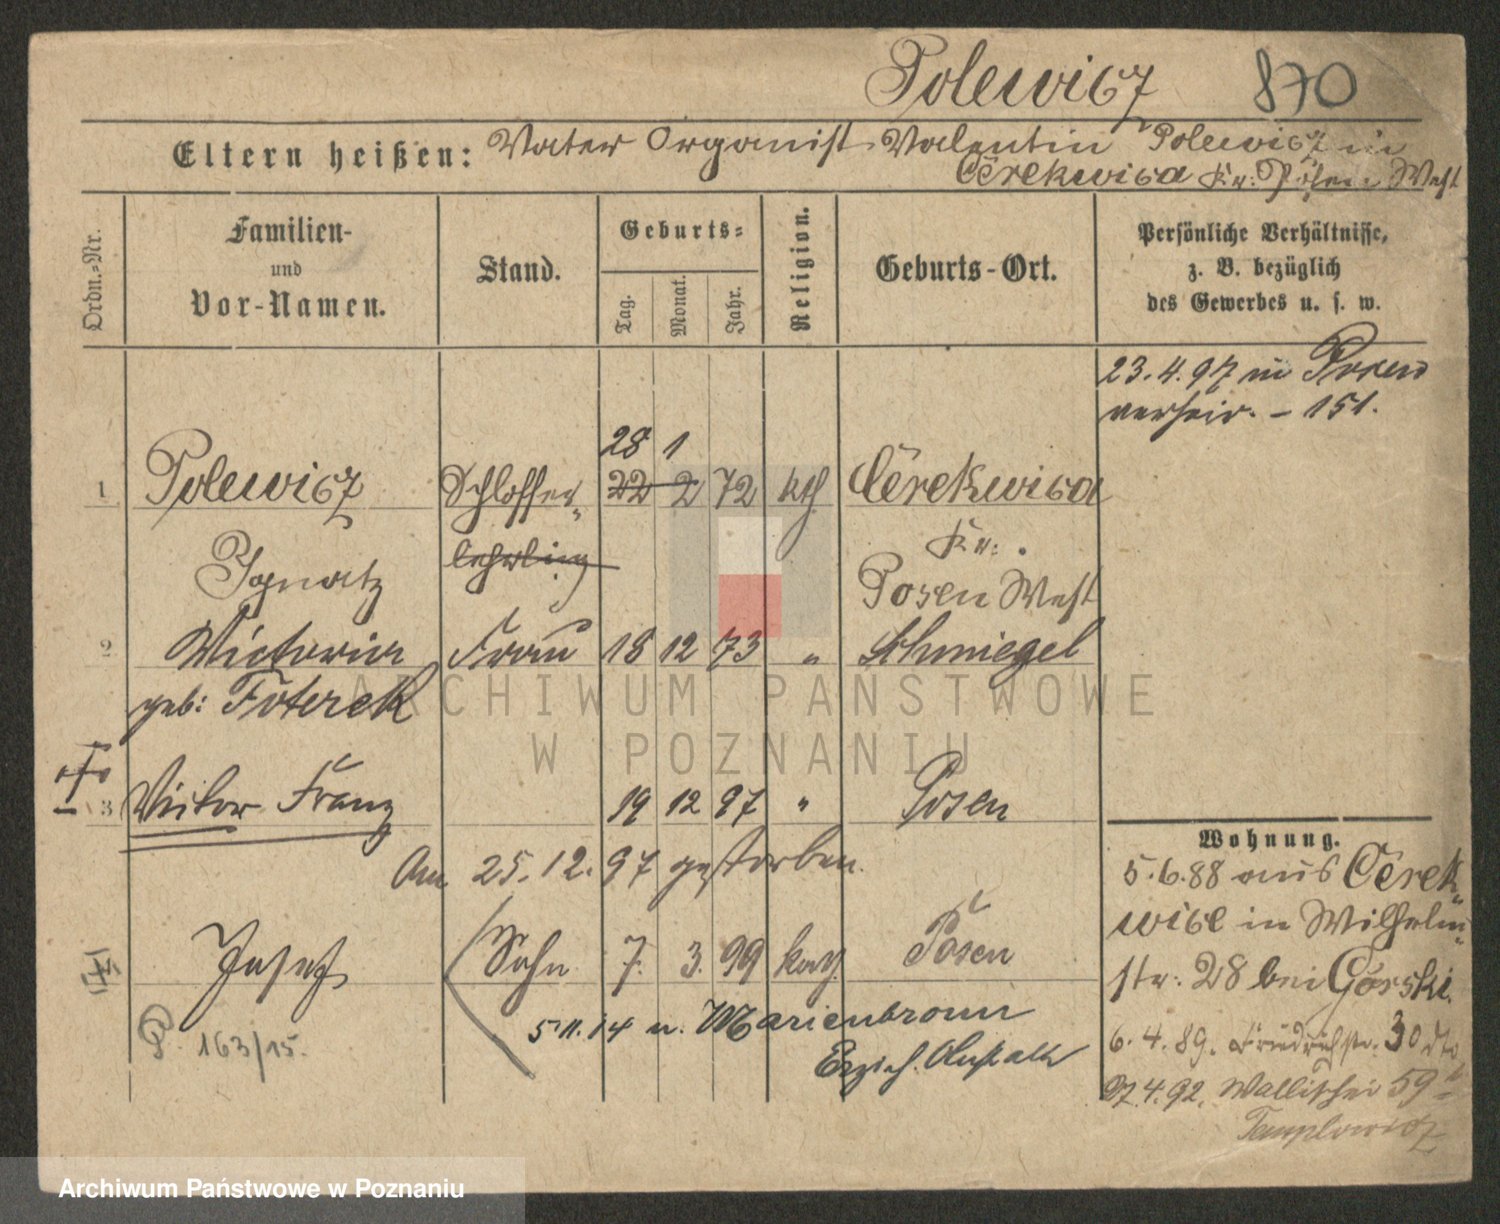 Polewicz 870
Eltern heißen: Vater Organist Valentin Polewicz in
Cerekwica Kr: Posen West
Ordn.-Nr.
Familien-
und
Vor-Namen.
Stand.
Geburts-
Tag.
Monat.
Jahr.
Religion.
Geburts-Ort.
Persönliche Verhältnisse,
z. B. bezüglich
des Gewerbes u. s. w.
23.4.97 in Posen
verheir. - 151.
28 1
1 Polewicz Schlosser- 22 2 72 kth. Cerekwica
lehrling Kr:
Ignatz Posen West
2 Victoria Frau 18 12 73 " Schmiegel
geb: Foterek
3 Victor Franz 19 12 97 " Posen
Am 25.12.97 gestorben.
Josef Sohn 7. 3. 99 kath. Posen
5.11.14 n. Marienbronn
Erzieh. Anstalt
163/15.
Wohnung.
5.6.88 aus Cerek-
wice in Wilhelm-
str: 28 bei Górski.
6.4.89. Friedrichstr. 30 dto
27.4.92. Wallischei 59
Templowicz
ARCHIWUM PAŃSTWOWE
W POZNANIU
Archiwum Państwowe w Poznaniu